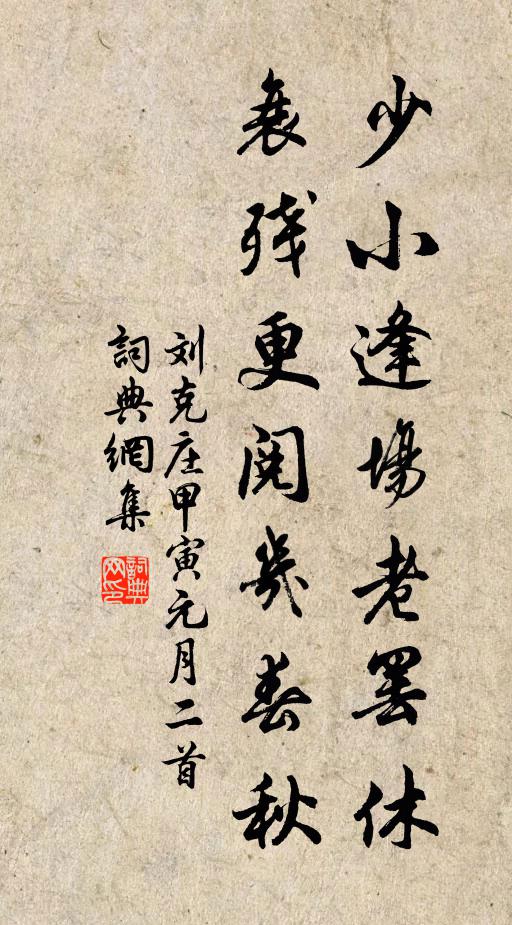 少小逢場老罢休
衰残更閱幾春秋
刘克庄甲寅元月二首
詞典網集
詞典网印